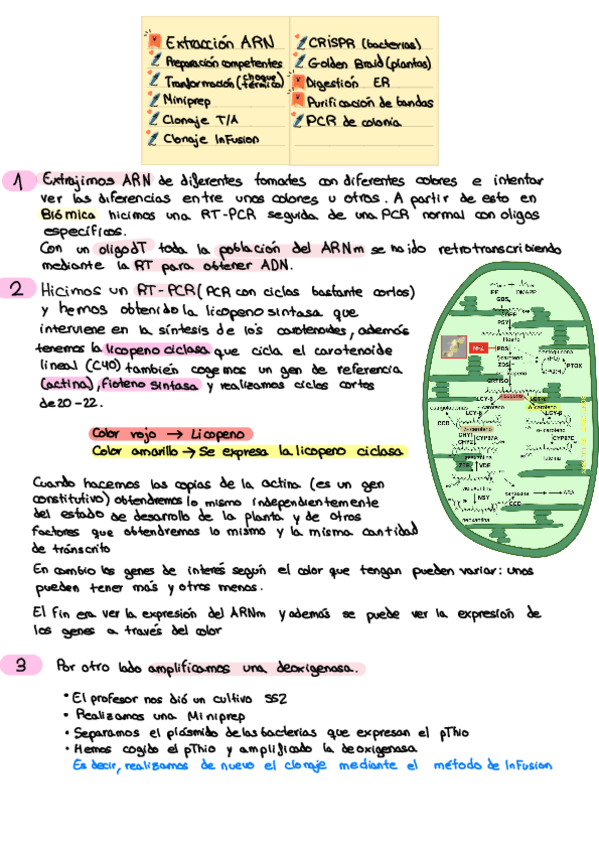 Extracción ARN
Preparación competentes
Tranformación (choque térmico)
Miniprep
Clonaje T/A
Clonaje InFusion
CRISPR (bacterias)
Golden Braid (plantas)
Digestión ER
Purificación de bandas
PCR de colonia
1 Extrajimos ARN de diferentes tomates con diferentes colores e intentar
ver las diferencias entre unos colores u otros. A partir de esto en
Biómica hicimos una RT-PCR seguida de una PCR normal con oligos
específicos.
Con un oligodT toda la población del ARNm se ha ido retrotranscribiendo
mediante la RT para obtener ADN.
2 Hicimos un RT-PCR (PCR con ciclos bastante cortos)
y hemos obtenido la licopeno sintasa que
interviene en la síntesis de los carotenoides, además
tenemos la licopeno ciclasa que cicla el carotenoide
lineal (C40) también cogemos un gen de referencia
(actina), fioteno sintasa y realizamos ciclos cortos
de 20-22.
Color rojo → Licopeno
Color amarillo → Se expresa la licopeno ciclasa
GGS
PSY
PDS
ZDS
PTOX
CRTISO
LCY-E
LCY-B
LCY-B
CYP97A
CYP97C
ZEP
VDE
NSY
ABA
Cuando hacemos las copias de la actina (es un gen
constitutivo) obtendremos lo mismo independientemente
del estado de desarrollo de la planta y de otros
factores que obtendremos lo mismo y la misma cantidad
de tránscrito
En cambio los genes de interés según el color que tengan pueden variar: unos
pueden tener más y otros menos.
El fin era ver la expresión del ARNm y además se puede ver la expresión de
los genes a través del color
3 Por otro lado amplificamos una deoxigenasa.
• El profesor nos dió un cultivo SS2
• Realizamos una Miniprep
• Separamos el plásmido de las bacterias que expresan el pThio
• Hemos cogido el pThio y amplificado la deoxigenasa
Es decir, realizamos de nuevo el clonaje mediante el método de InFusion